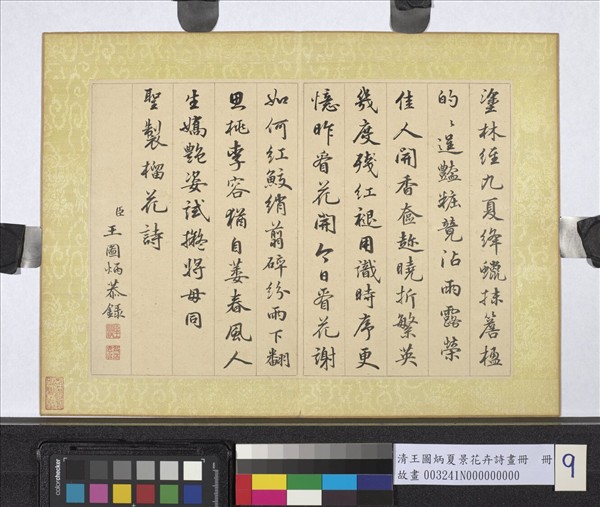 塗林經九夏絳蠟抹簷楹
的〻逞豔粧竟沾雨露榮
佳人開香奩趂曉折繁英
幾度残紅褪用識時序更
憶昨看花開今日看花謝
如何紅鮫綃剪碎紛雨下翻
思桃李容猶自萎春風人
生嬌艷姿試擬將毋同
聖製榴花詩
臣王圖炳恭錄
colorchecker
清王圖炳夏景花卉詩畫冊 冊
故畫 003241N000000000
9